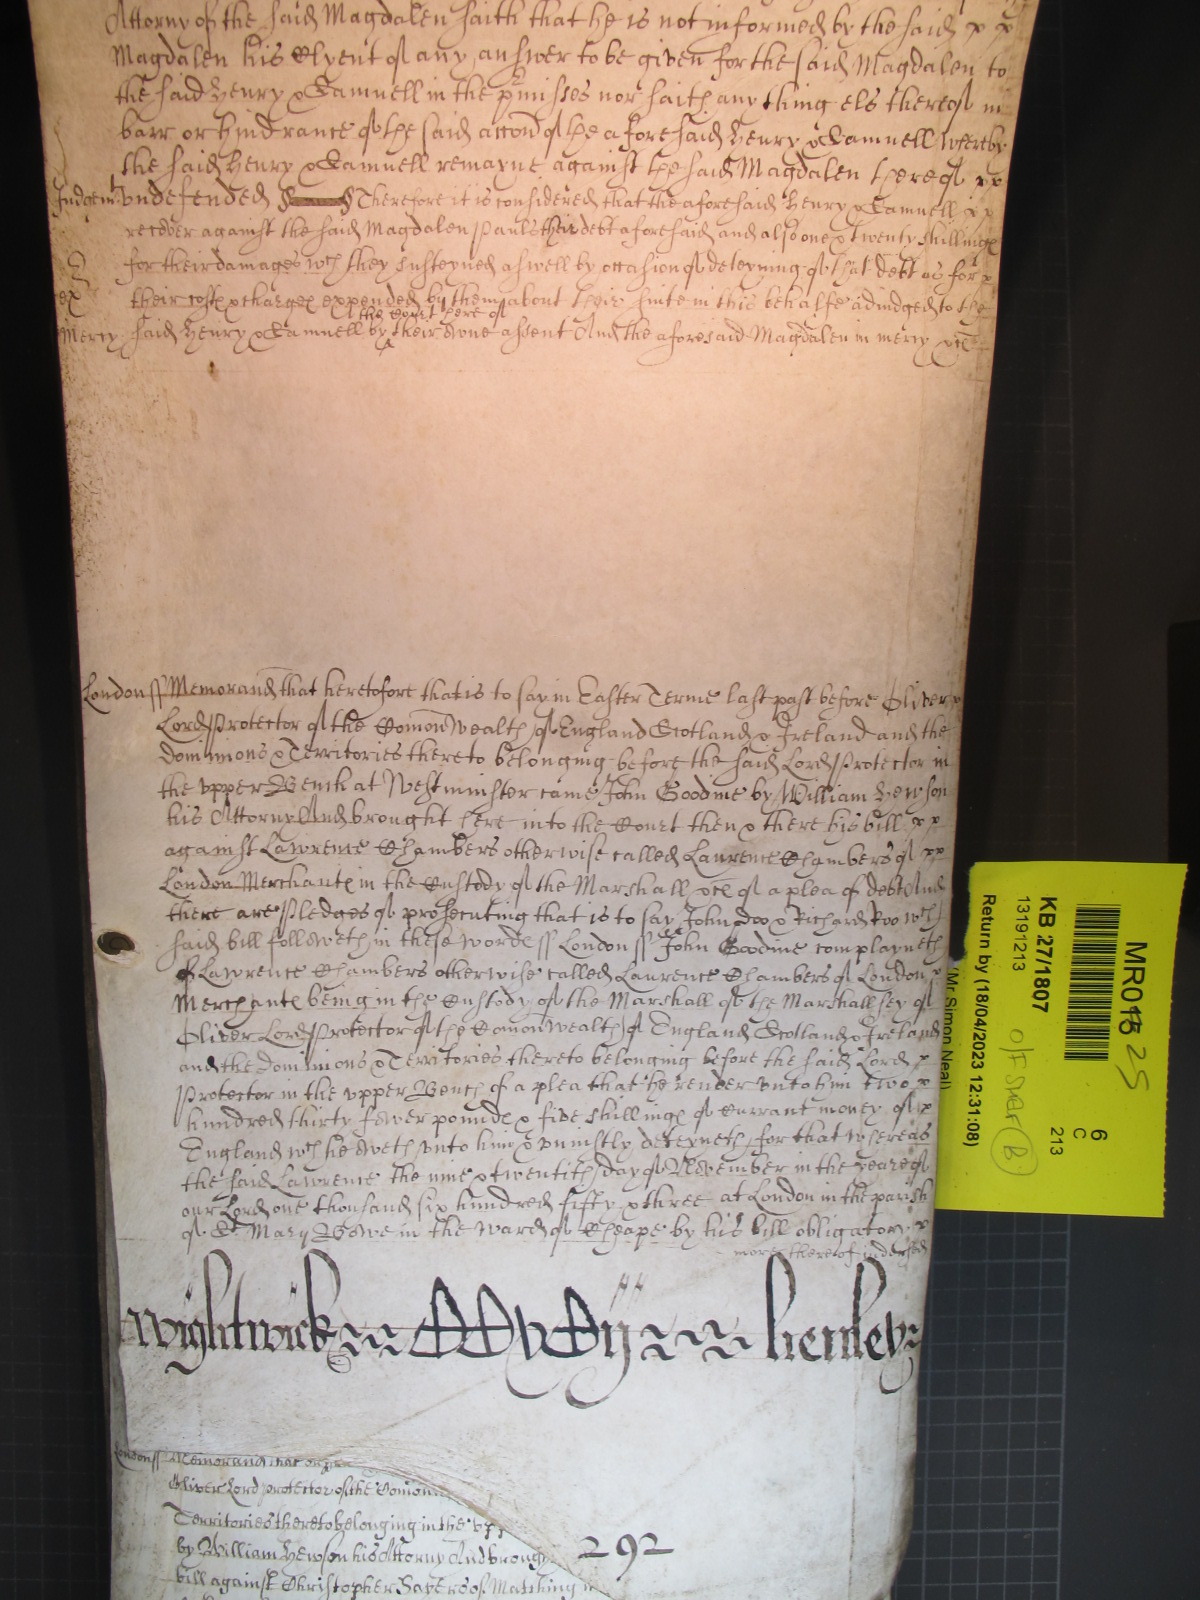 Attorny of the said Magdalen saith that he is not informed by the said x x
Magdalen his Clyent of any answer to be given for the said Magdalen to
the said Henry & Camnell in the pmisses nor saith any thing els thereof in
barr or hindrance of the said accon of the aforesaid Henry & Camnell whereby
the said Henry & Camnell remayne against the said Magdalen thereof xx
Judgemt vndefended Therefore it is considered that the aforesaid Henry & Camnell x x
recover against the said Magdalen Pauls their debt aforesaid and also one & twenty shillings
for their damages wch they susteyned aswell by occasion of deteyning of that debt as for x
their costs & charges expended by them about their suite in this behalfe adiudged to the
the Court here of
Mercy said Henry & Camnell by their owne assent And the aforesaid Magdalen in mercy &c
London ss Memorand that heretofore that is to say in Easter Terme last past before Oliver x
Lord Protector of the Comonwealth of England Scotland & Ireland and the
Dominions & Territories thereto belonging before the said Lord Protector in
the vpper Bench at Westminster came John Goodine by William Hewson
his Attorny And brought here into the Court then & there his bill x x
against Lawrence Chambers otherwise called Laurence Chambers of xx
London Merchante in the Custody of the Marshall &c of a plea of debt And
there are Pledges of prosecuting that is to say John Doo & Richard Roo wch
said bill followeth in these words ss London ss John Goodine complayneth
of Lawrence Chambers otherwise called Laurence Chambers of London x
Merchante being in the Custody of the Marshall of the Marshallsey of
Oliver Lord Protector of the Comonwealth of England Scotland & Ireland
and the Dominions & Territories thereto belonging before the said Lord x
Protector in the vpper Bench of a plea that he render vnto him two x
hundred thirty fower pounds & five shillings of Currant money of x
England wch he oweth vnto him & vniustly deteyneth for that whereas
the said Lawrence the nine & twentith day of November in the yeare of
our Lord one thousand six hundred fifty & three at London in the parish
of St Mary Bowe in the ward of Cheape by his bill obligatory x
more thereof indorsed
Wightwick
henley
London ss Memorand that
Oliver Lord protector of the Comon
Territories thereto belonging in the vpp
by William Hewson his Attorny And brough
bill against Christopher Sayers of Matching
292
MR018 25
6
C
213
KB 27/1807
13191213
O/F Shelf B
Return by (18/04/2023 12:31:08)
(Mr Simon Neal)